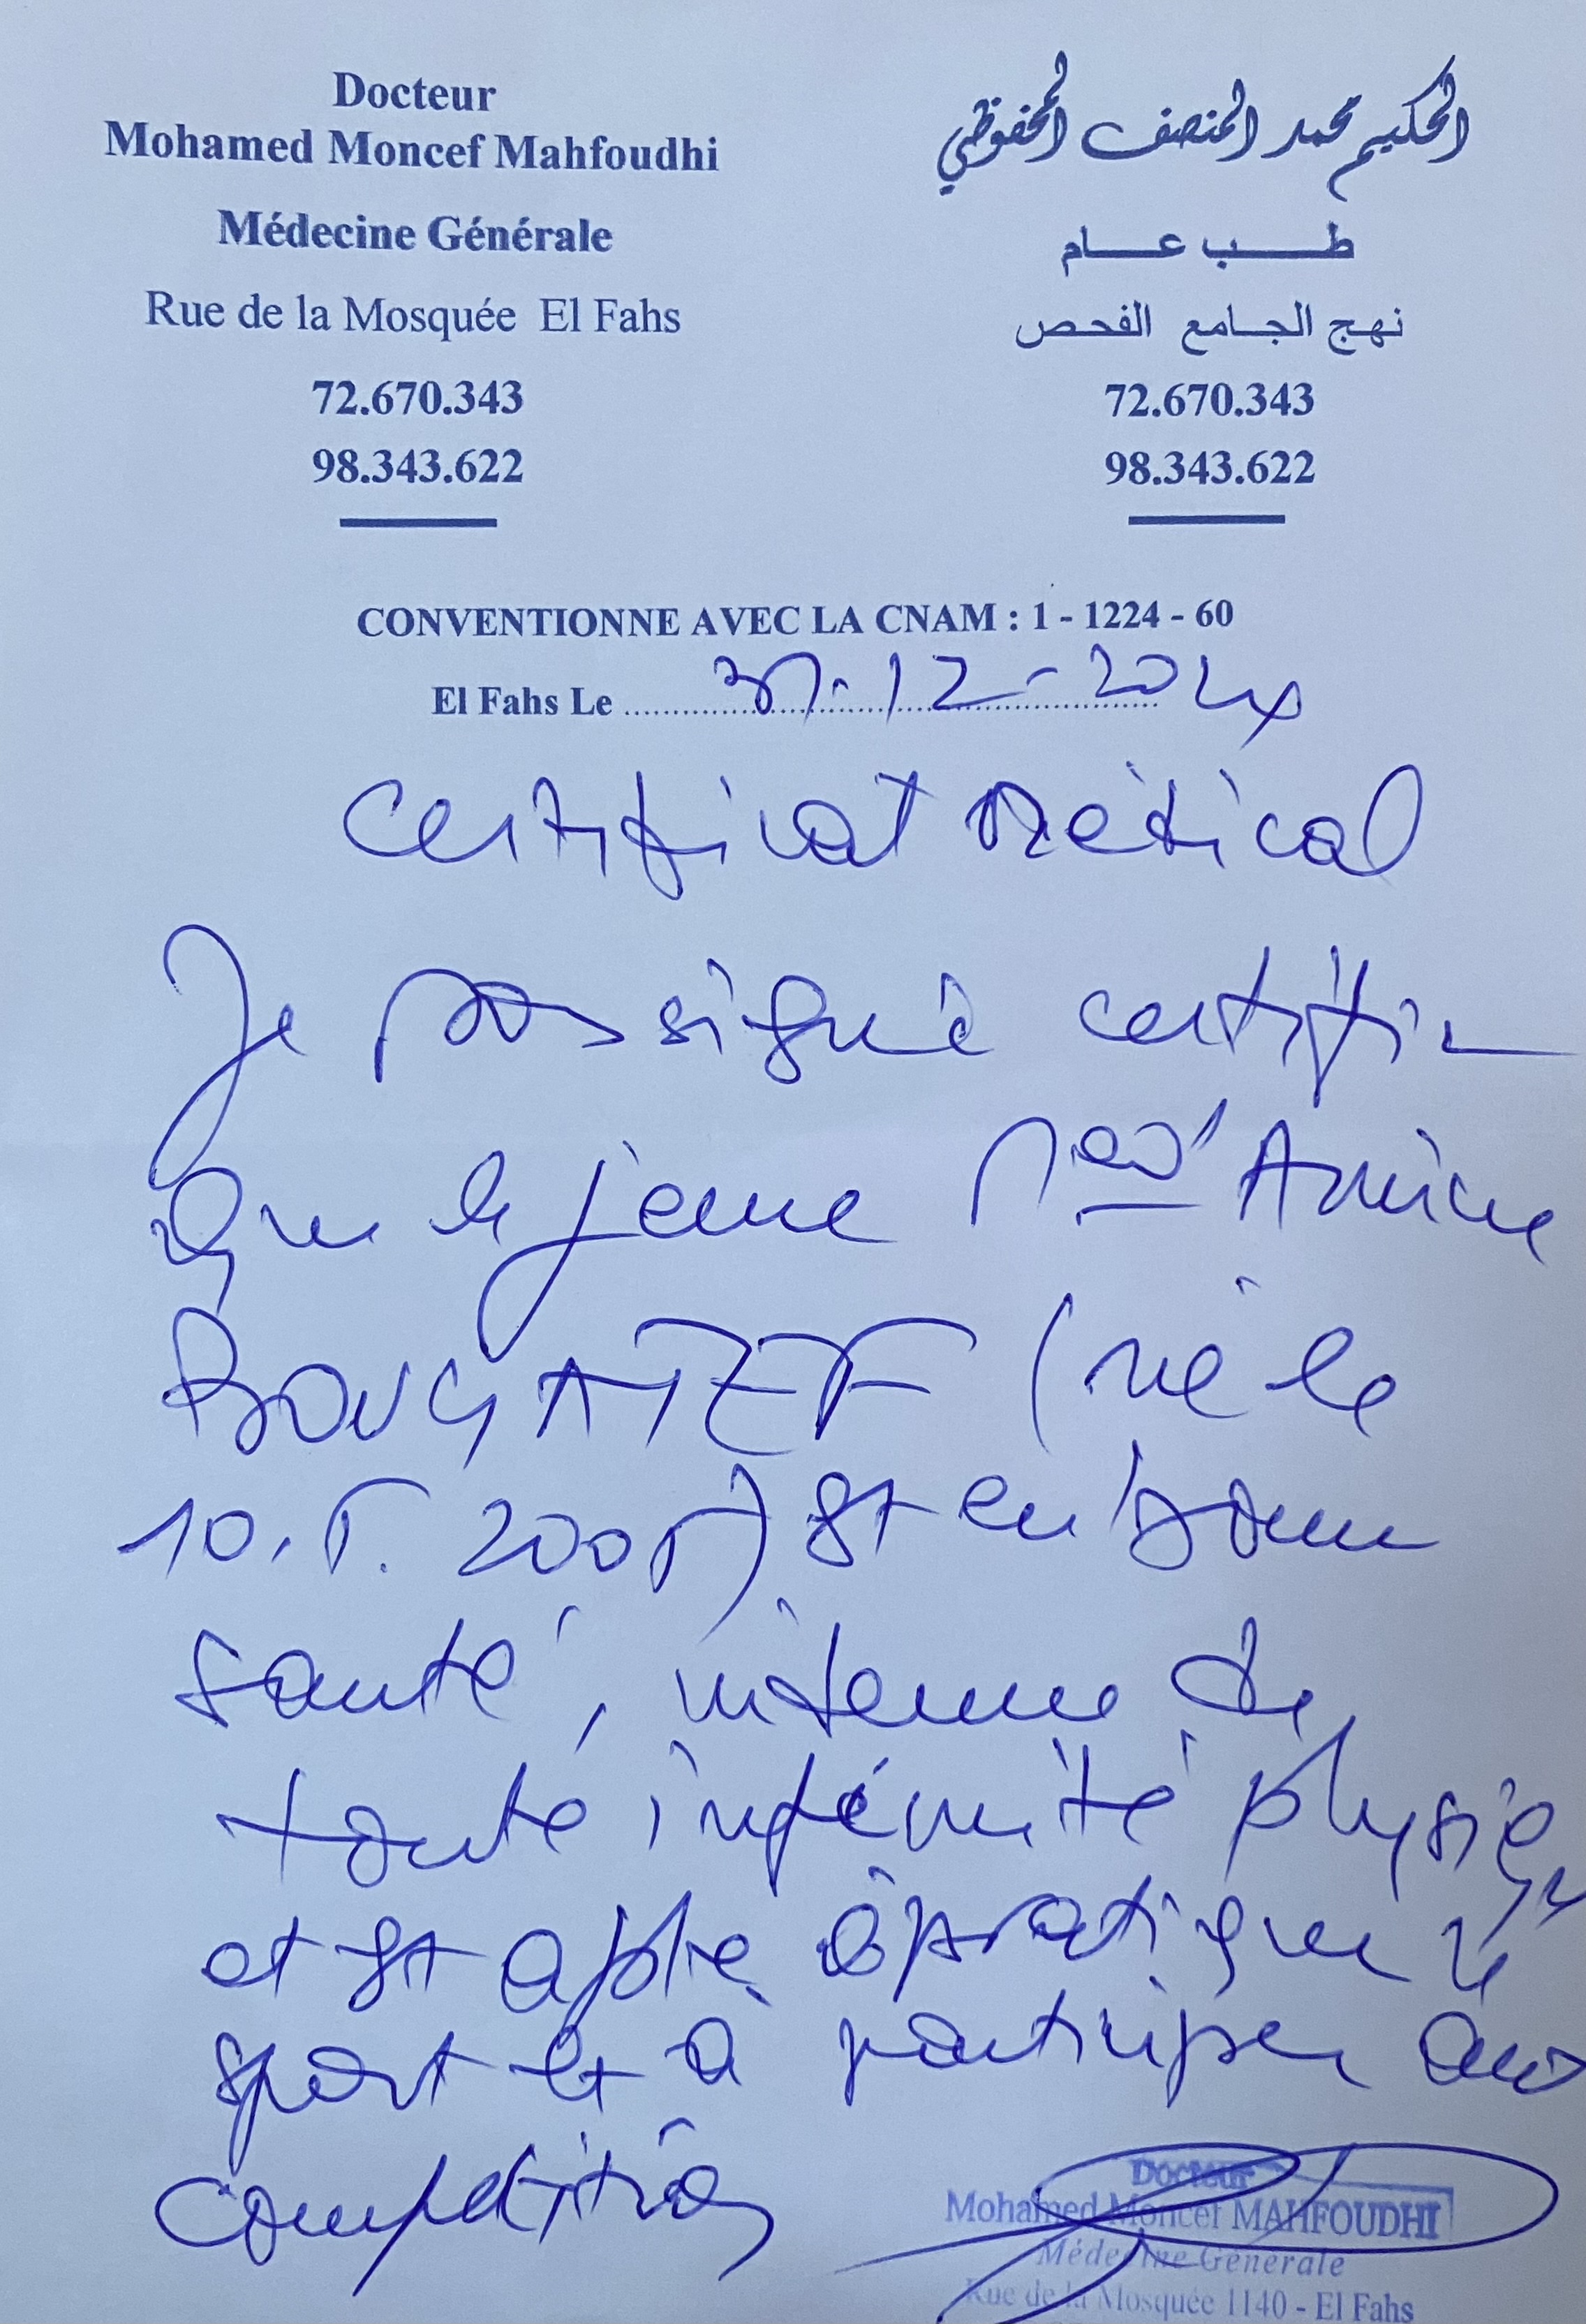 Docteur
Mohamed Moncef Mahfoudhi
Médecine Générale
Rue de la Mosquée El Fahs
72.670.343
98.343.622
الحكيم محمد المنصف المحفوظي
طب عام
نهج الجامع الفحص
72.670.343
98.343.622
CONVENTIONNE AVEC LA CNAM : 1 - 1224 - 60
El Fahs Le 31-12-2024
Certificat Médical
Je soussigné certifie
que le jeune Med Amine
BOUGATEF (né le
10.5.2005) est en bonne
santé, indemne de
toute infirmité physique
et est apte à pratiquer le
sport et à participer aux
compétitions
Docteur
Mohamed Moncef MAHFOUDHI
Médecine Générale
Rue de la Mosquée 1140 - El Fahs